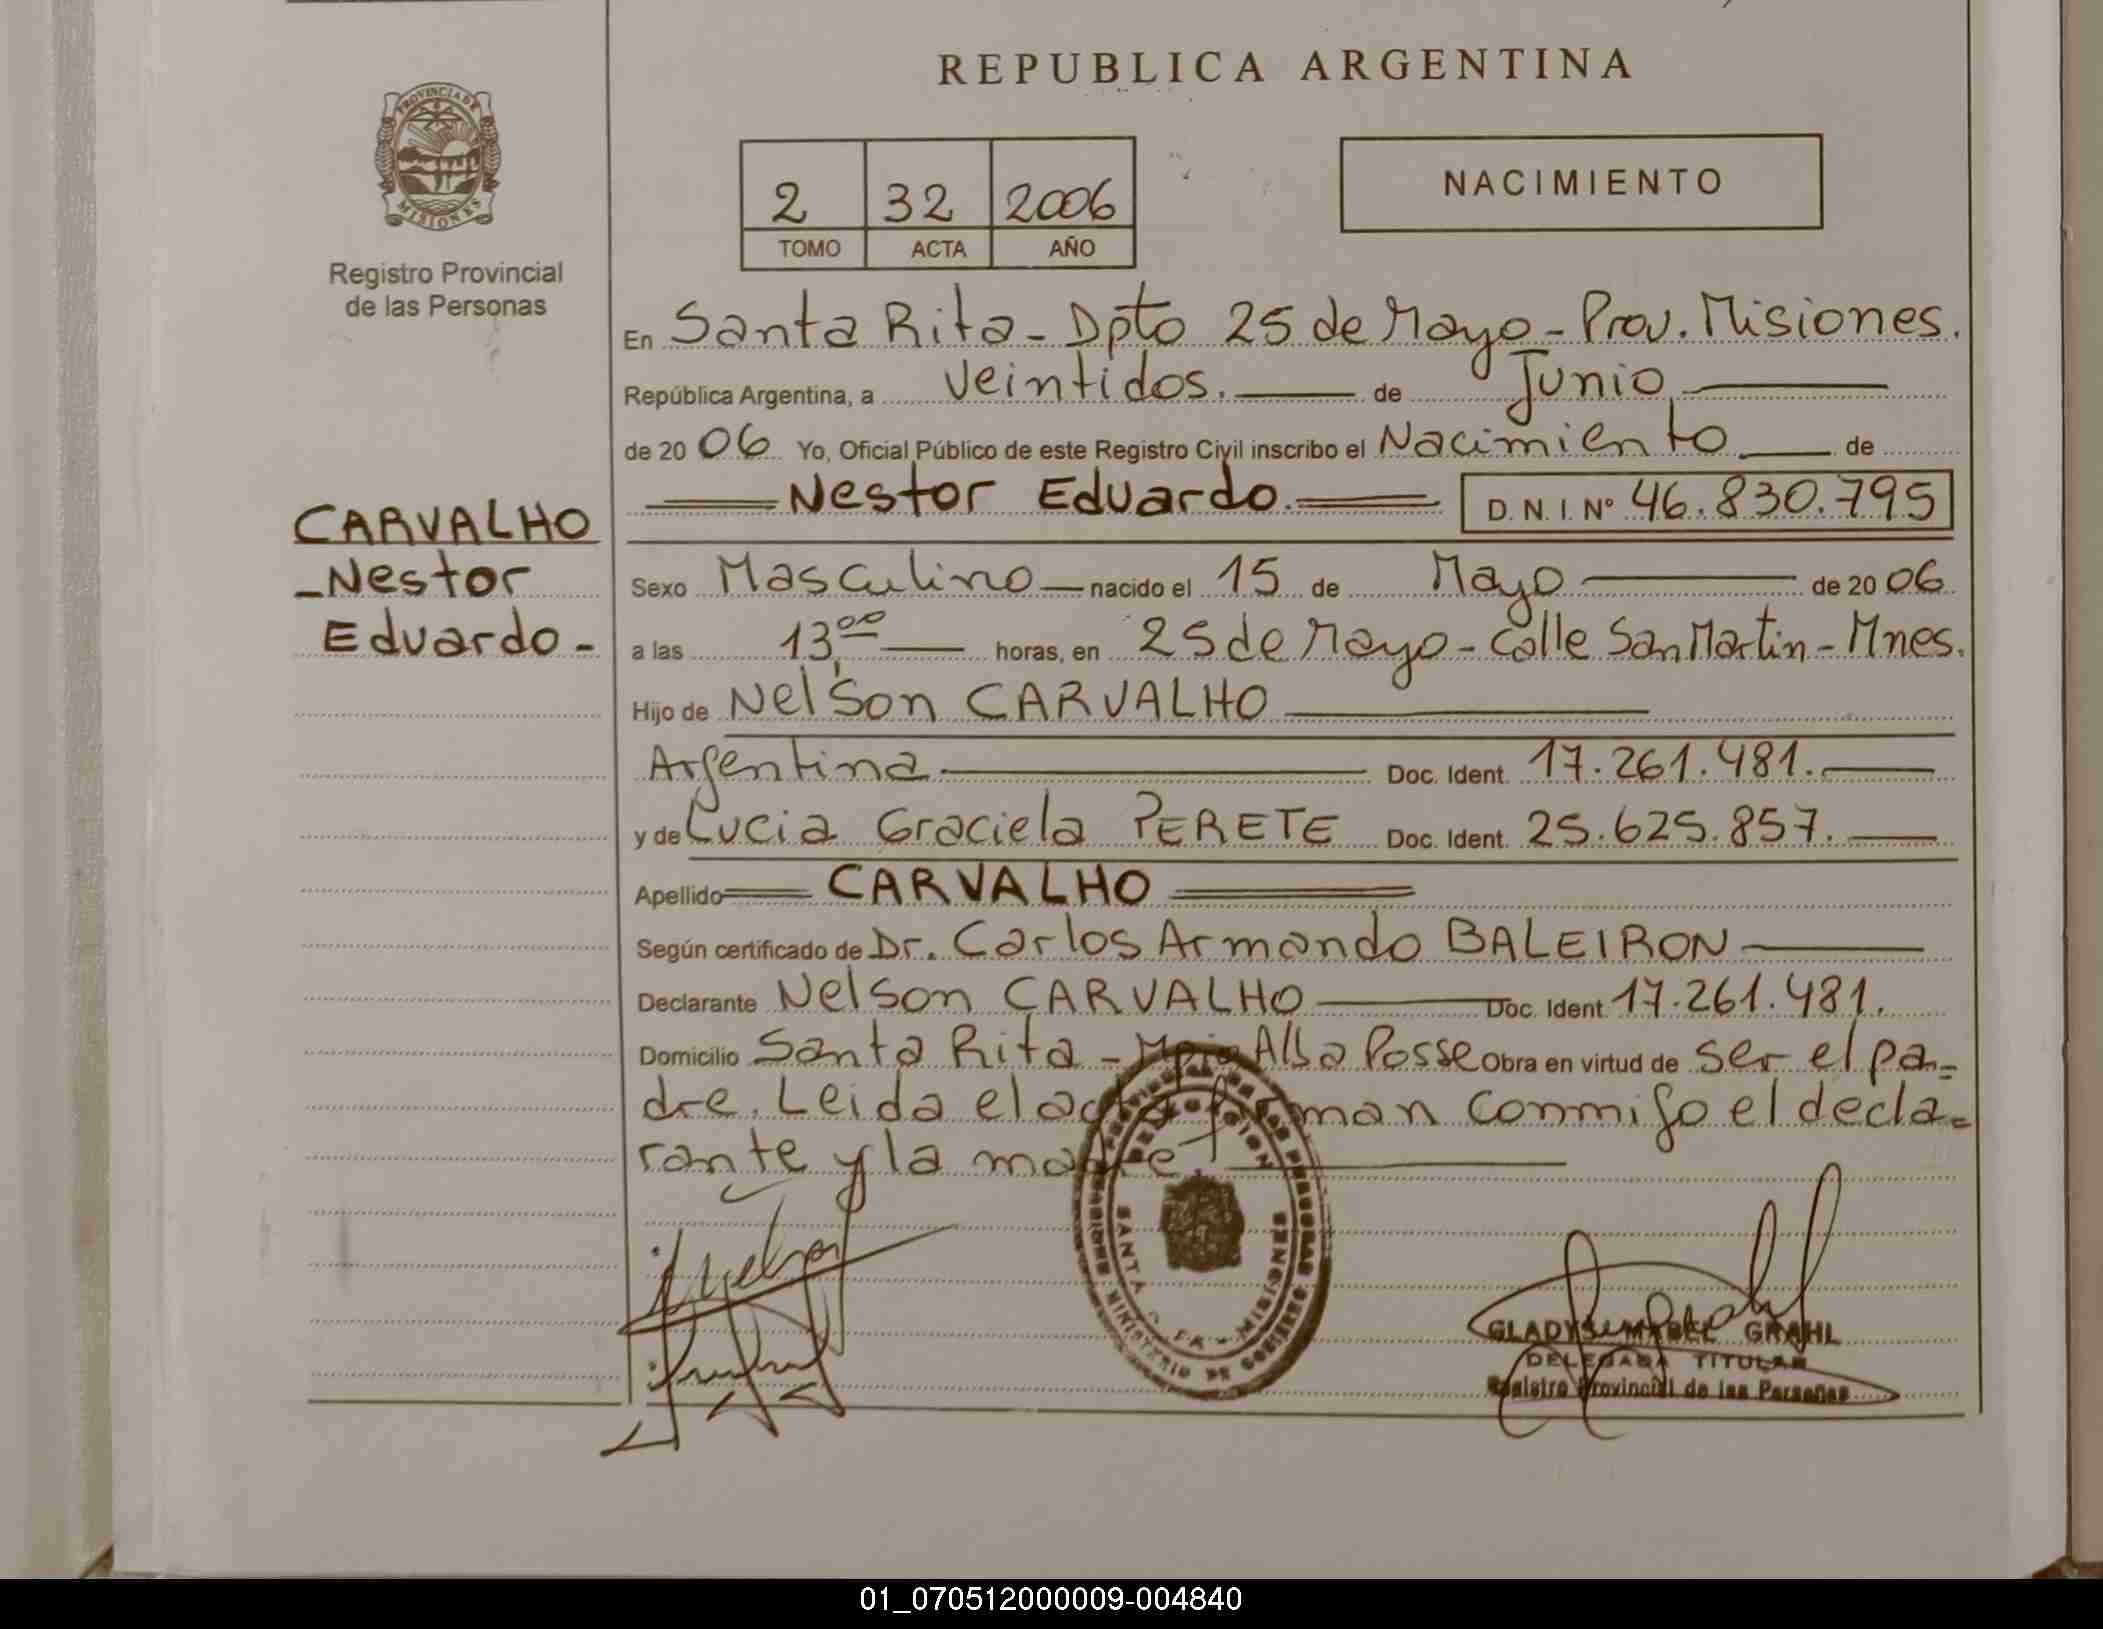 REPUBLICA ARGENTINA
PROVINCIA DE
MISIONES
Registro Provincial
de las Personas
2 32 2006
TOMO ACTA AÑO
NACIMIENTO
En Santa Rita - Dpto 25 de Mayo - Prov. Misiones.
República Argentina, a veintidos. de Junio
de 20 06 Yo, Oficial Público de este Registro Civil inscribo el Nacimiento de
Nestor Eduardo. D. N. I. Nº 46.830.795
CARVALHO
- Nestor
Eduardo -
Sexo Masculino nacido el 15 de Mayo de 20 06
a las 13,00 horas, en 25 de Mayo - Calle San Martin - Mnes.
Hijo de Nelson CARVALHO
Argentina Doc. Ident. 17.261.481.
y de Lucia Graciela PERETE Doc. Ident. 25.625.857.
Apellido CARVALHO
Según certificado de Dr. Carlos Armando BALEIRON
Declarante Nelson CARVALHO Doc. Ident 17.261.481.
Domicilio Santa Rita - Mpio Alba Posse Obra en virtud de ser el pa=
dre. Leida el acta firman conmigo el decla=
rante y la madre.
SANTA RITA - MISIONES
GLADYS MABEL GRAHL
DELEGADA TITULAR
Registro Provincial de las Personas
01_070512000009-004840